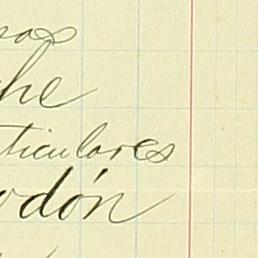 sos
che
ticulares
odón